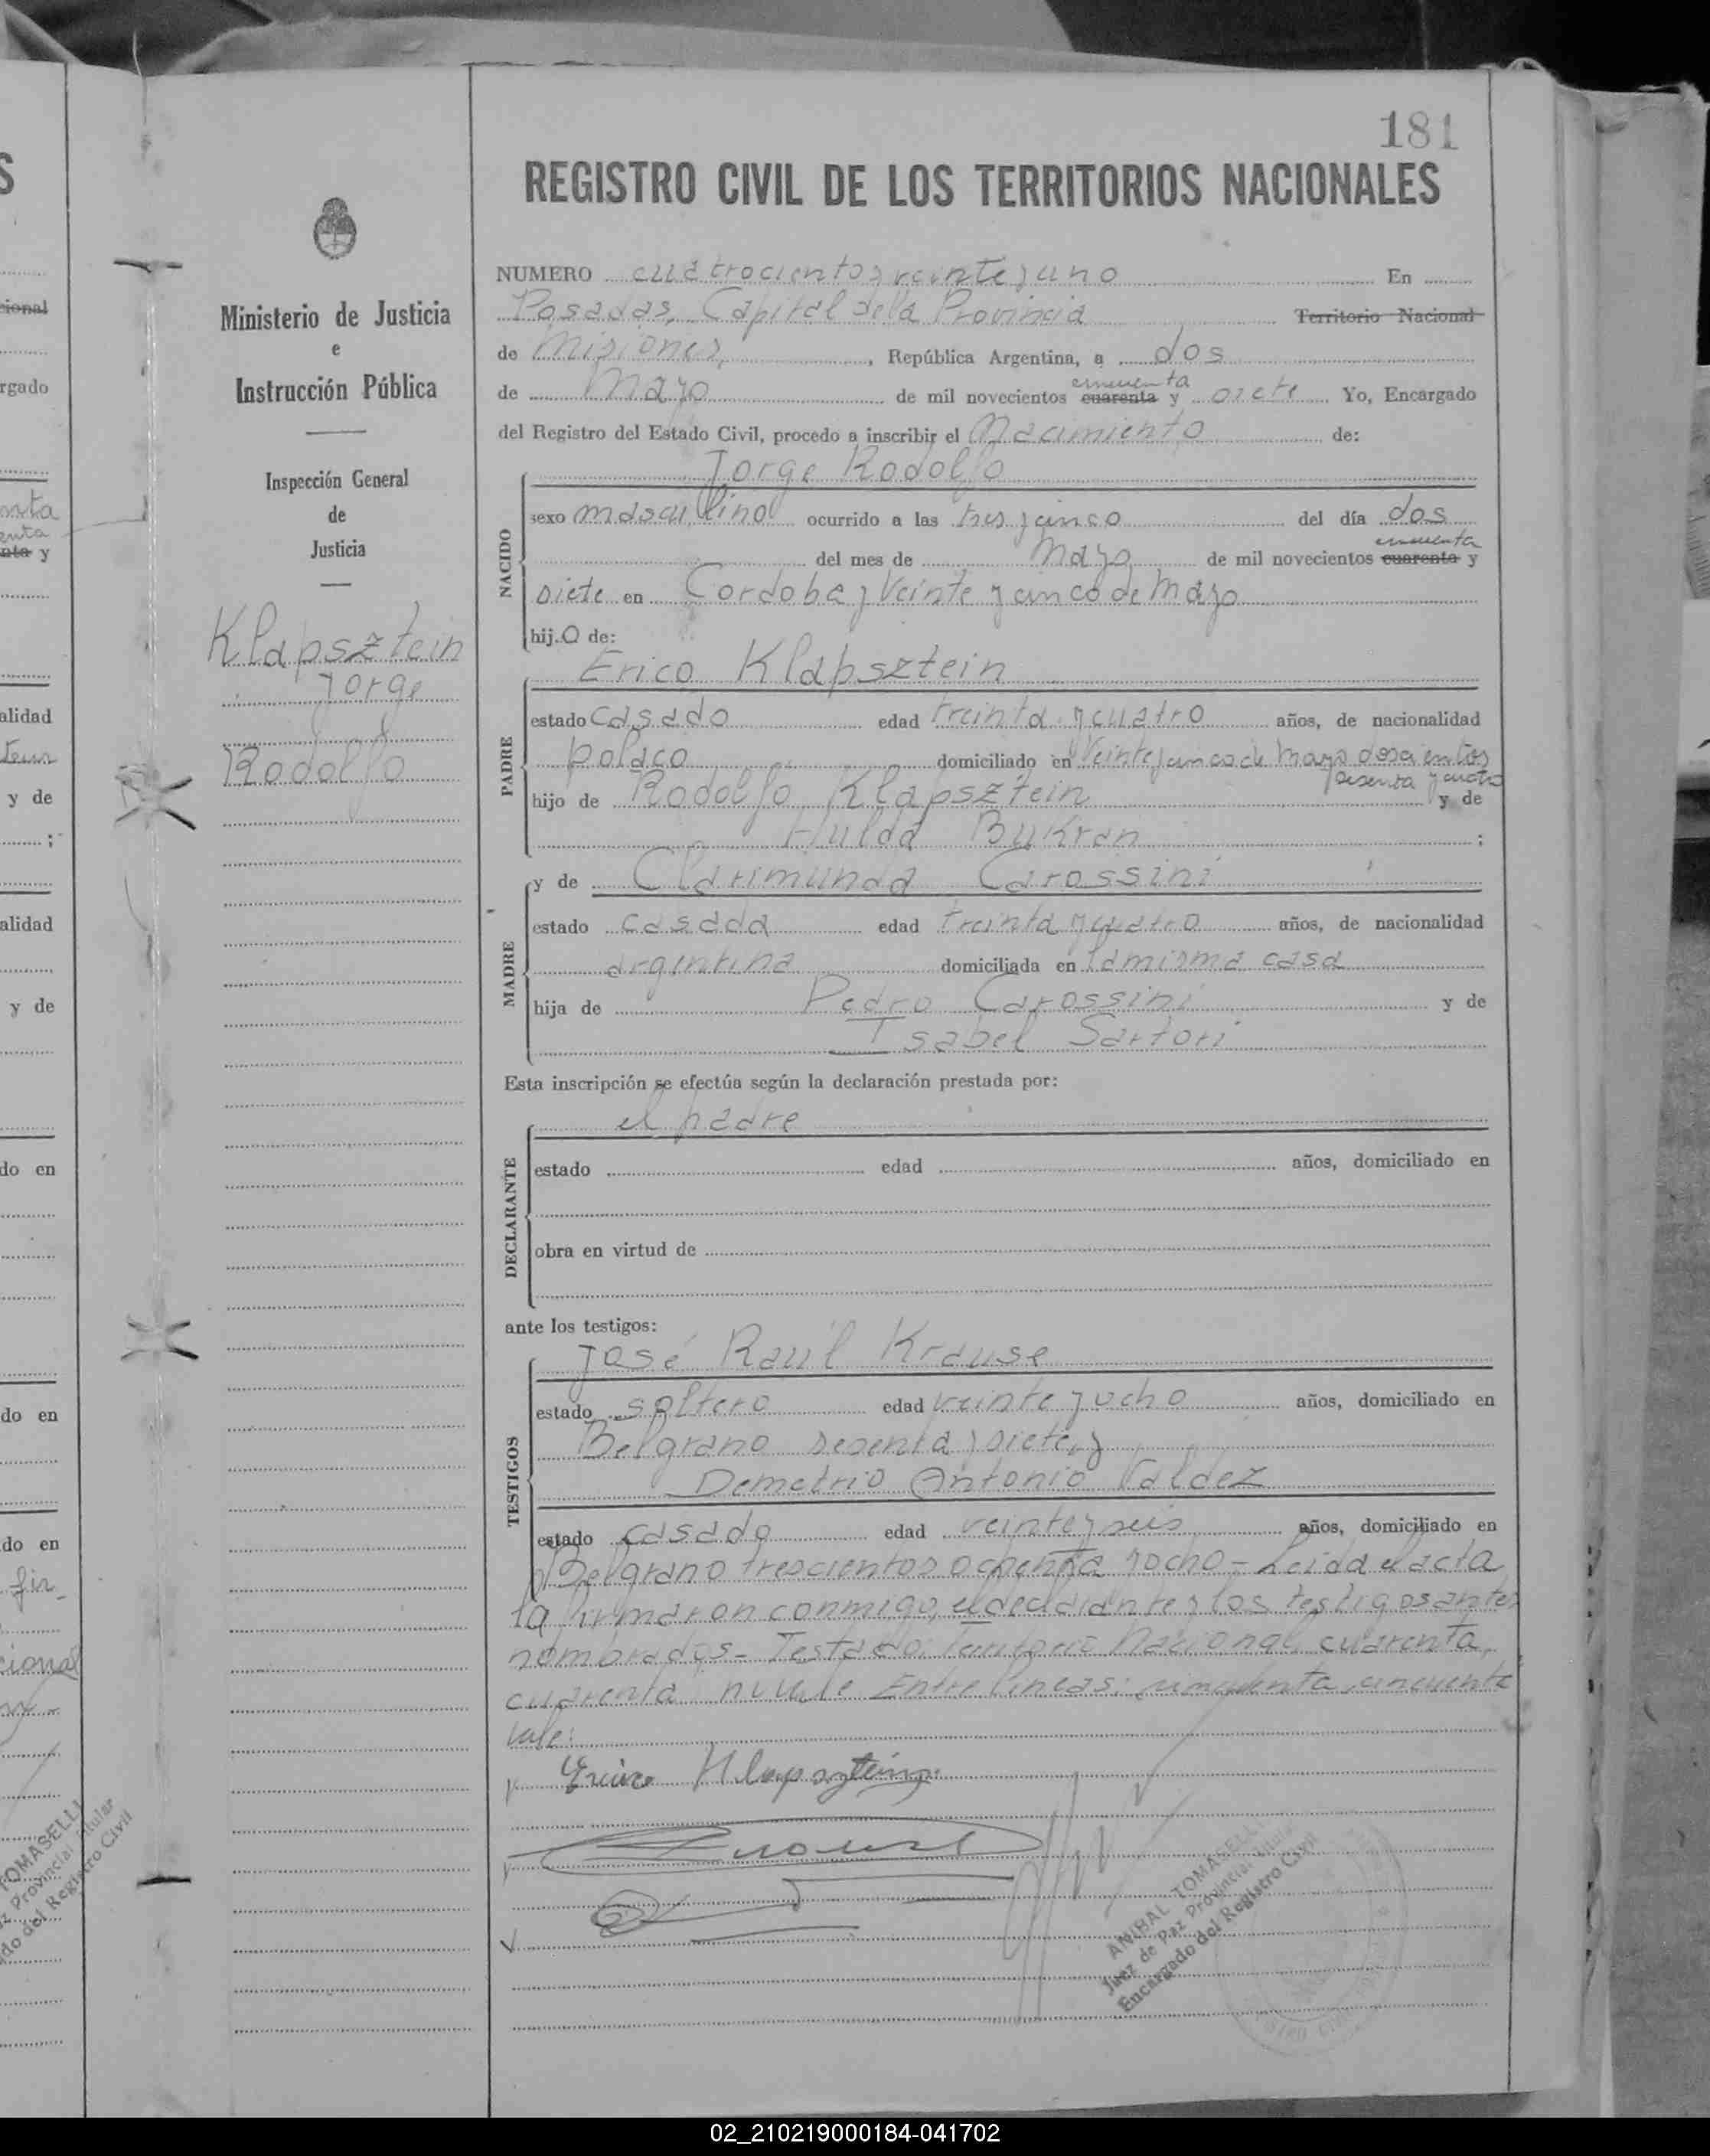 181
REGISTRO CIVIL DE LOS TERRITORIOS NACIONALES
Ministerio de Justicia
e
Instrucción Pública
Inspección General
de
Justicia
Klapsztein
Jorge
Rodolfo
NUMERO cuatrocientos veinte y uno En
Posadas, Capital de la Provincia Territorio Nacional
de Misiones, , República Argentina, a dos
cincuenta
de Mayo de mil novecientos cuarenta y siete Yo, Encargado
del Registro del Estado Civil, procedo a inscribir el Nacimiento de:
NACIDO
Jorge Rodolfo
sexo masculino ocurrido a las tres y cinco del día dos
cincuenta
del mes de Mayo de mil novecientos cuarenta y
siete en Cordoba y Veinte y cinco de Mayo
hijo de:
PADRE
Erico Klapsztein
estado casado edad treinta y cuatro años, de nacionalidad
polaco domiciliado en Veinte y cinco de Mayo doscientos
sesenta y cuatro
hijo de Rodolfo Klapsztein y de
Hulda Bukran ;
MADRE
y de Clarimunda Carossini
estado casada edad treinta y cuatro años, de nacionalidad
argentina domiciliada en la misma casa
hija de Pedro Carossini y de
Isabel Sartori
Esta inscripción se efectúa según la declaración prestada por:
DECLARANTE
el padre
estado edad años, domiciliado en
obra en virtud de
ante los testigos:
TESTIGOS
José Raúl Krause
estado soltero edad veinte y ocho años, domiciliado en
Belgrano sesenta y siete, y
Demetrio Antonio Valdez
estado casado edad veinte y seis años, domiciliado en
Belgrano trescientos ochenta y ocho - Leida el acta
la firmaron conmigo, el declarante y los testigos antes
nombrados - Testado: Territorio Nacional, cuarenta,
cuarenta, no vale Entre lineas: cincuenta, cincuenta
vale:
Erico Klapsztein
Krause
ANIBAL TOMASELLI
Juez de Paz Provincial Titular
Encargado del Registro Civil
02_210219000184-041702